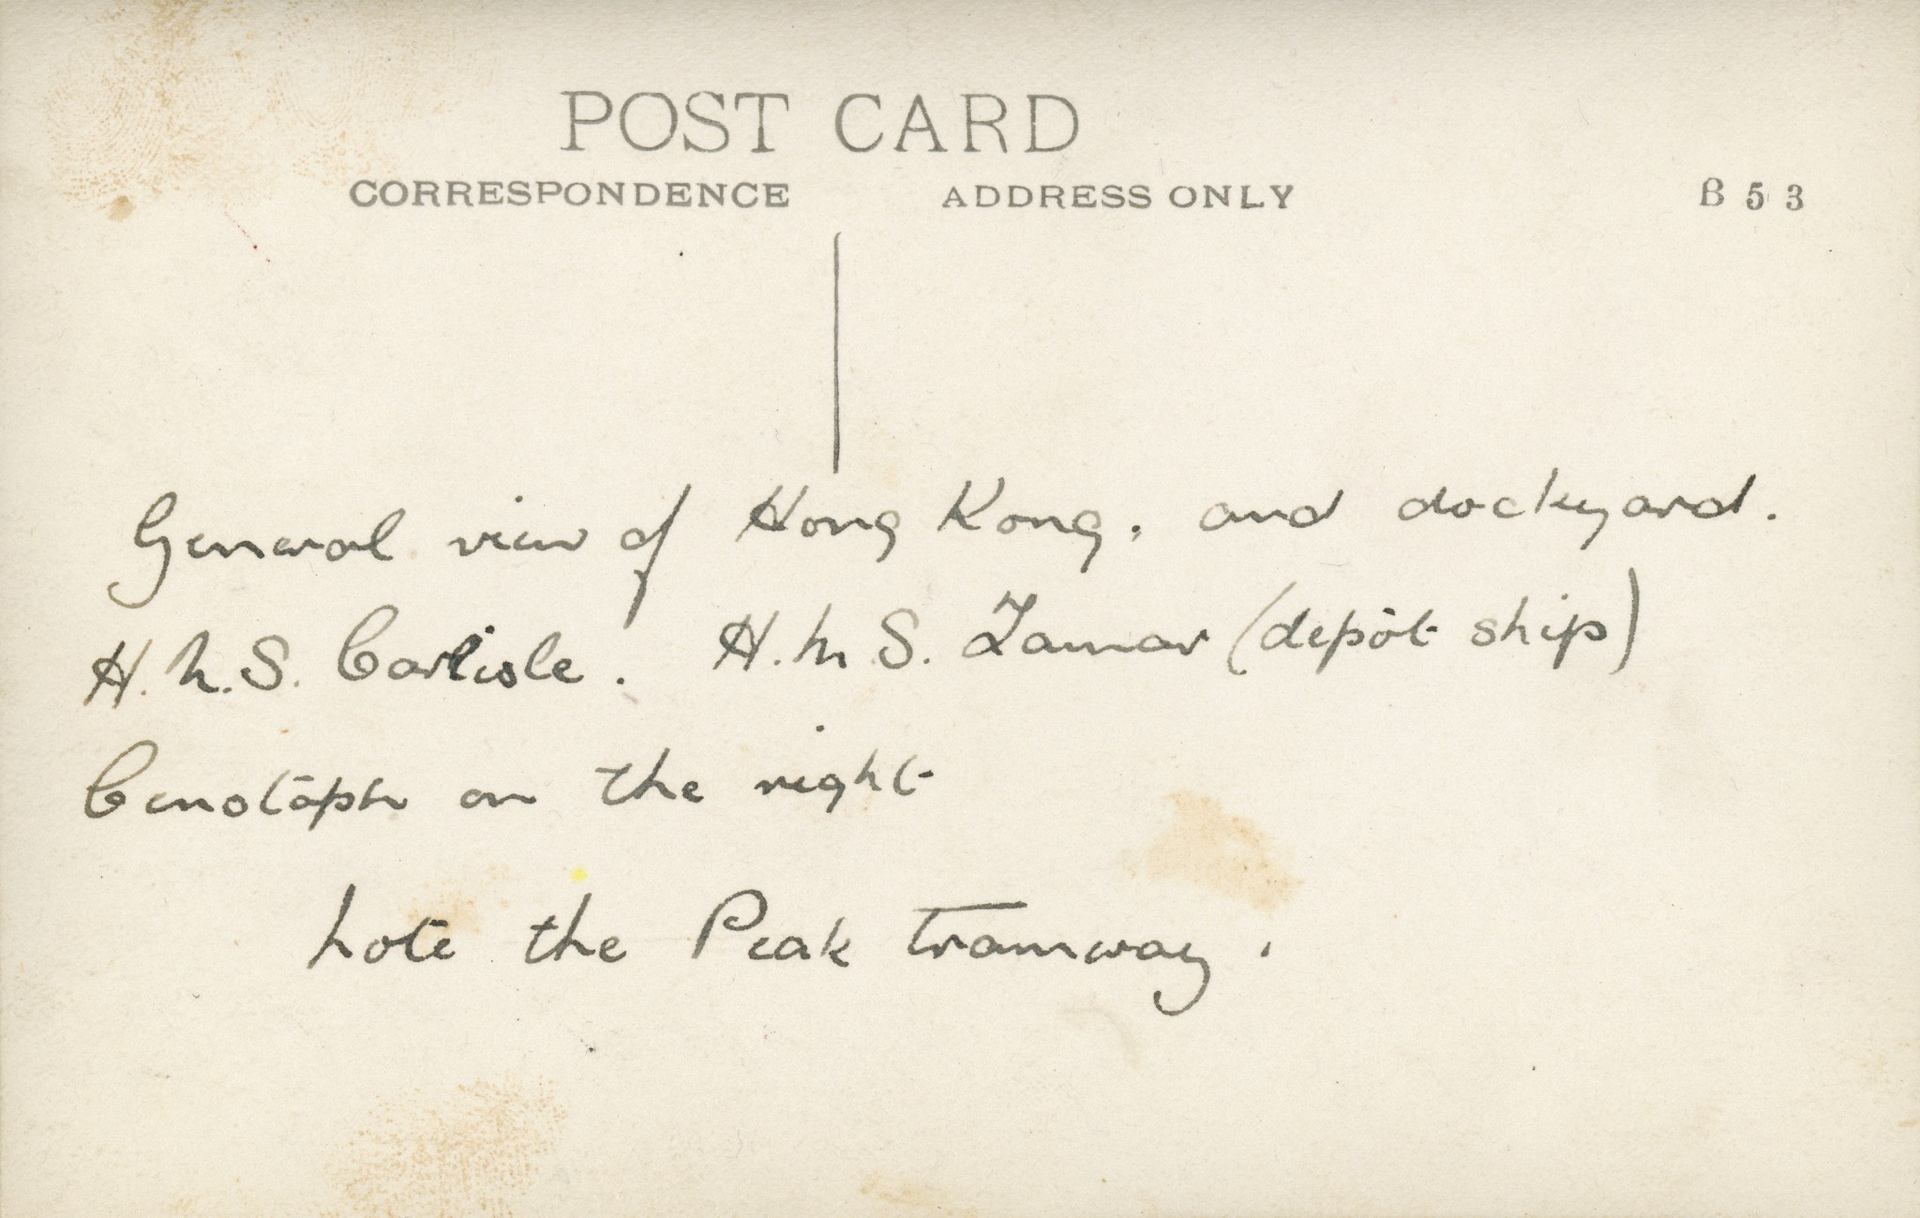 POST CARD
CORRESPONDENCE ADDRESS ONLY B 53
General view of Hong Kong, and dockyard.
H.M.S. Carlisle. H.M.S. Tamar (depôt ship)
Cenotaph on the right
Note the Peak tramway.